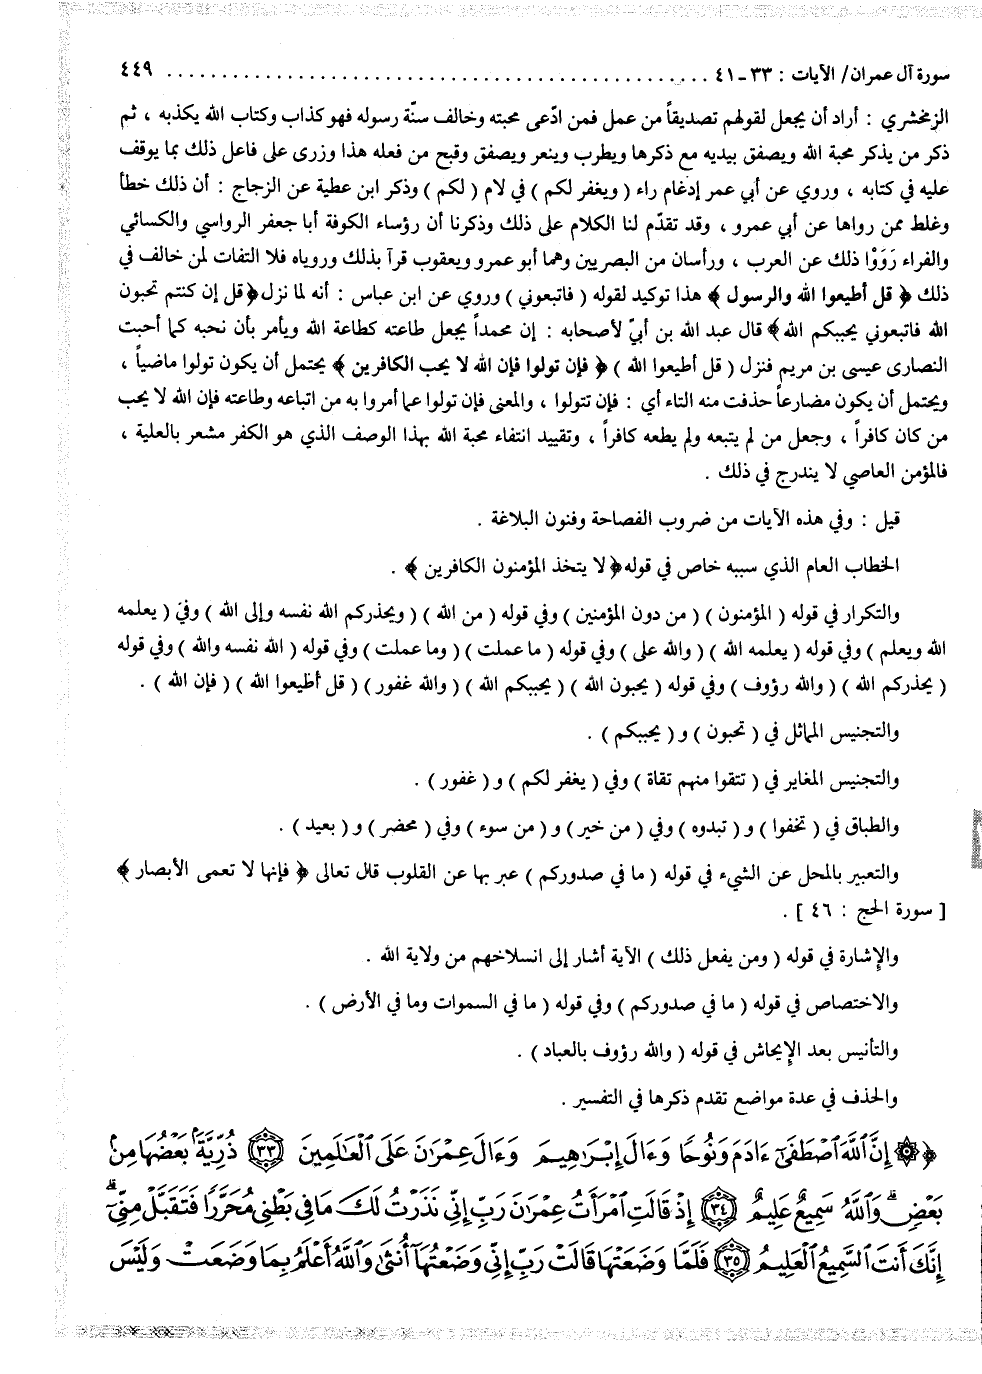 سورة آل عمران/ الآيات : ٣٣ ـ ٤١ ........................................ ٤٤٩
الزمخشري : أراد أن يجعل لقولهم تصديقاً من عمل فمن ادّعى محبته وخالف سنّة رسوله فهو كذاب وكتاب الله يكذبه ، ثم
ذكر من يذكر محبة الله ويصفق بيديه مع ذكرها ويطرب وينعر ويصفق وقبح من فعله هذا وزرى على فاعل ذلك بما يوقف
عليه في كتابه ، وروي عن أبي عمر إدغام راء ( ويغفر لكم ) في لام ( لكم ) وذكر ابن عطية عن الزجاج : أن ذلك خطأ
وغلط ممن رواها عن أبي عمرو ، وقد تقدّم لنا الكلام على ذلك وذكرنا أن رؤساء الكوفة أبا جعفر الرواسي والكسائي
والفراء رَوَوْا ذلك عن العرب ، ورأسان من البصريين وهما أبو عمرو ويعقوب قرآ بذلك وروياه فلا التفات لمن خالف في
ذلك ﴿ قل أطيعوا الله والرسول ﴾ هذا توكيد لقوله ( فاتبعوني ) وروي عن ابن عباس : أنه لما نزل ﴿ قل إن كنتم تحبون
الله فاتبعوني يحببكم الله ﴾ قال عبد الله بن أبيّ لأصحابه : إن محمداً يجعل طاعته كطاعة الله ويأمر بأن نحبه كما أحبت
النصارى عيسى بن مريم فنزل ( قل أطيعوا الله ) ﴿ فإن تولوا فإن الله لا يحب الكافرين ﴾ يحتمل أن يكون تولوا ماضياً ،
ويحتمل أن يكون مضارعاً حذفت منه التاء أي : فإن تتولوا ، والمعنى فإن تولوا عما أمروا به من اتباعه وطاعته فإن الله لا يحب
من كان كافراً ، وجعل من لم يتبعه ولم يطعه كافراً ، وتقييد انتفاء محبة الله بهذا الوصف الذي هو الكفر مشعر بالعلية ،
فالمؤمن العاصي لا يندرج في ذلك .
قيل : وفي هذه الآيات من ضروب الفصاحة وفنون البلاغة .
الخطاب العام الذي سببه خاص في قوله ﴿ لا يتخذ المؤمنون الكافرين ﴾ .
والتكرار في قوله ( المؤمنون ) ( من دون المؤمنين ) وفي قوله ( من الله ) ( ويحذركم الله نفسه وإلى الله ) وفي ( يعلمه
الله ويعلم ) وفي قوله ( يعلمه الله ) ( والله على ) وفي قوله ( ما عملت ) ( وما عملت ) وفي قوله ( الله نفسه والله ) وفي قوله
( يحذركم الله ) ( والله رؤوف ) وفي قوله ( يحبون الله ) ( يحببكم الله ) ( والله غفور ) ( قل أطيعوا الله ) ( فإن الله ) .
والتجنيس المماثل في ( تحبون ) و ( يحببكم ) .
والتجنيس المغاير في ( تتقوا منهم تقاة ) وفي ( يغفر لكم ) و ( غفور ) .
والطباق في ( تخفوا ) و ( تبدوه ) وفي ( من خير ) و ( من سوء ) وفي ( محضر ) و ( بعيد ) .
والتعبير بالمحل عن الشيء في قوله ( ما في صدوركم ) عبر بها عن القلوب قال تعالى ﴿ فإنها لا تعمى الأبصار ﴾
[ سورة الحج : ٤٦ ] .
والإشارة في قوله ( ومن يفعل ذلك ) الآية أشار إلى انسلاخهم من ولاية الله .
والاختصاص في قوله ( ما في صدوركم ) وفي قوله ( ما في السموات وما في الأرض ) .
والتأنيس بعد الإيحاش في قوله ( والله رؤوف بالعباد ) .
والحذف في عدة مواضع تقدم ذكرها في التفسير .
﴿ ۞ إِنَّ ٱللَّهَ ٱصْطَفَىٰٓ ءَادَمَ وَنُوحًا وَءَالَ إِبْرَٰهِيمَ وَءَالَ عِمْرَٰنَ عَلَى ٱلْعَٰلَمِينَ ٣٣ ذُرِّيَّةًۢ بَعْضُهَا مِنۢ
بَعْضٍۗ وَٱللَّهُ سَمِيعٌ عَلِيمٌ ٣٤ إِذْ قَالَتِ ٱمْرَأَتُ عِمْرَٰنَ رَبِّ إِنِّي نَذَرْتُ لَكَ مَا فِي بَطْنِي مُحَرَّرًا فَتَقَبَّلْ مِنِّيٓۖ
إِنَّكَ أَنتَ ٱلسَّمِيعُ ٱلْعَلِيمُ ٣٥ فَلَمَّا وَضَعَتْهَا قَالَتْ رَبِّ إِنِّي وَضَعْتُهَآ أُنثَىٰ وَٱللَّهُ أَعْلَمُ بِمَا وَضَعَتْ وَلَيْسَ